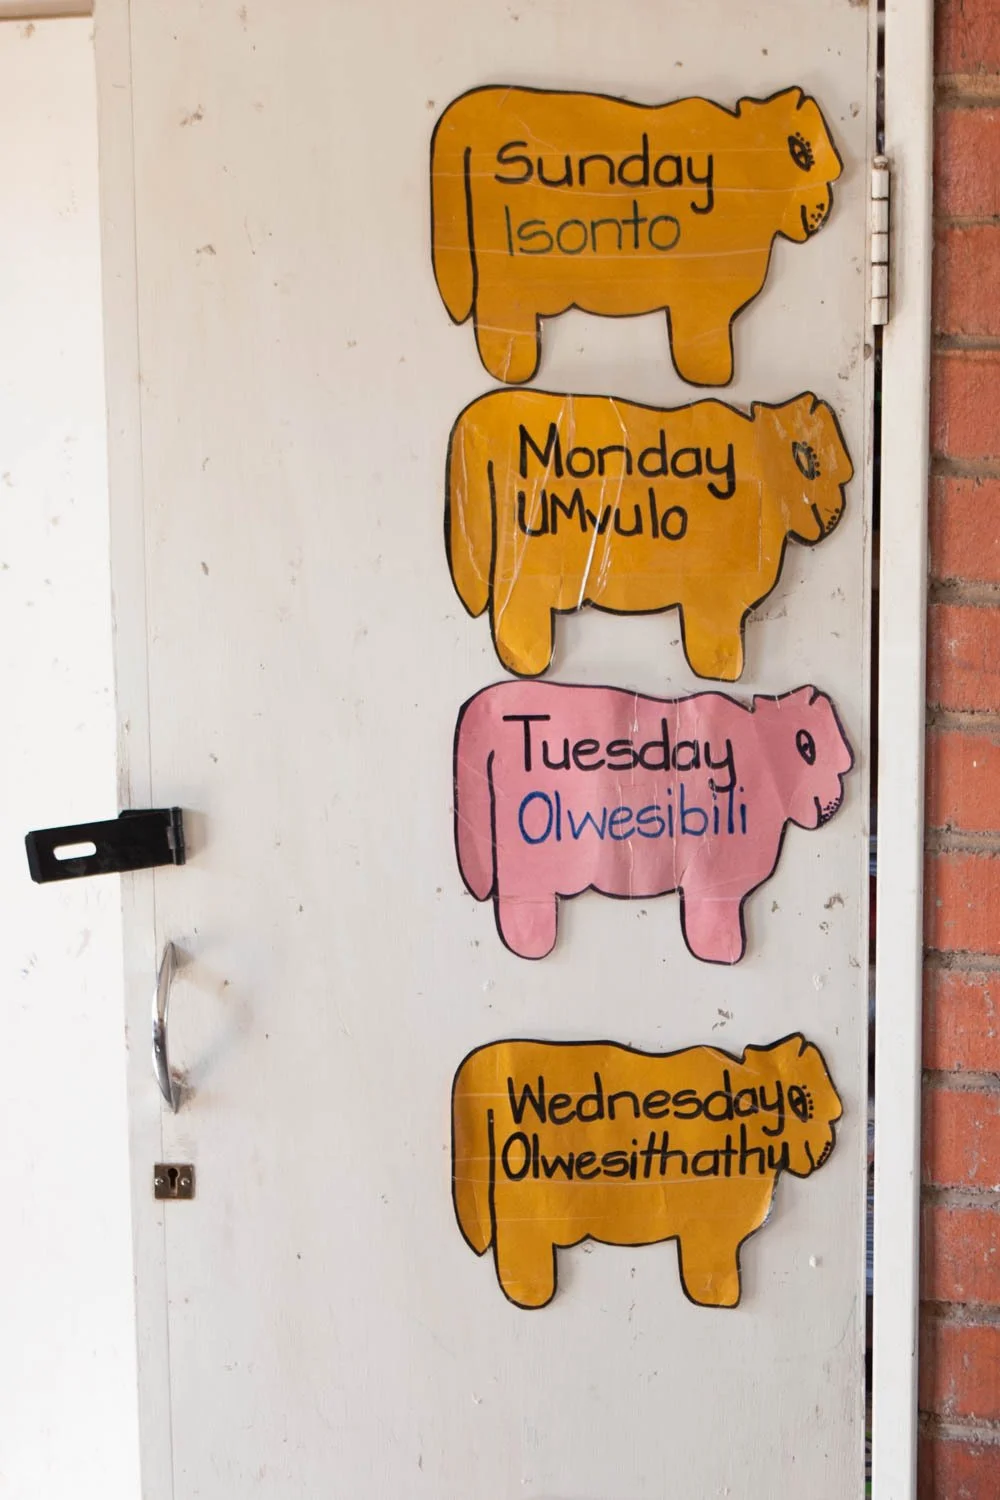 Sunday
Isonto
Monday
UMvulo
Tuesday
Olwesibili
Wednesday
Olwesithathu